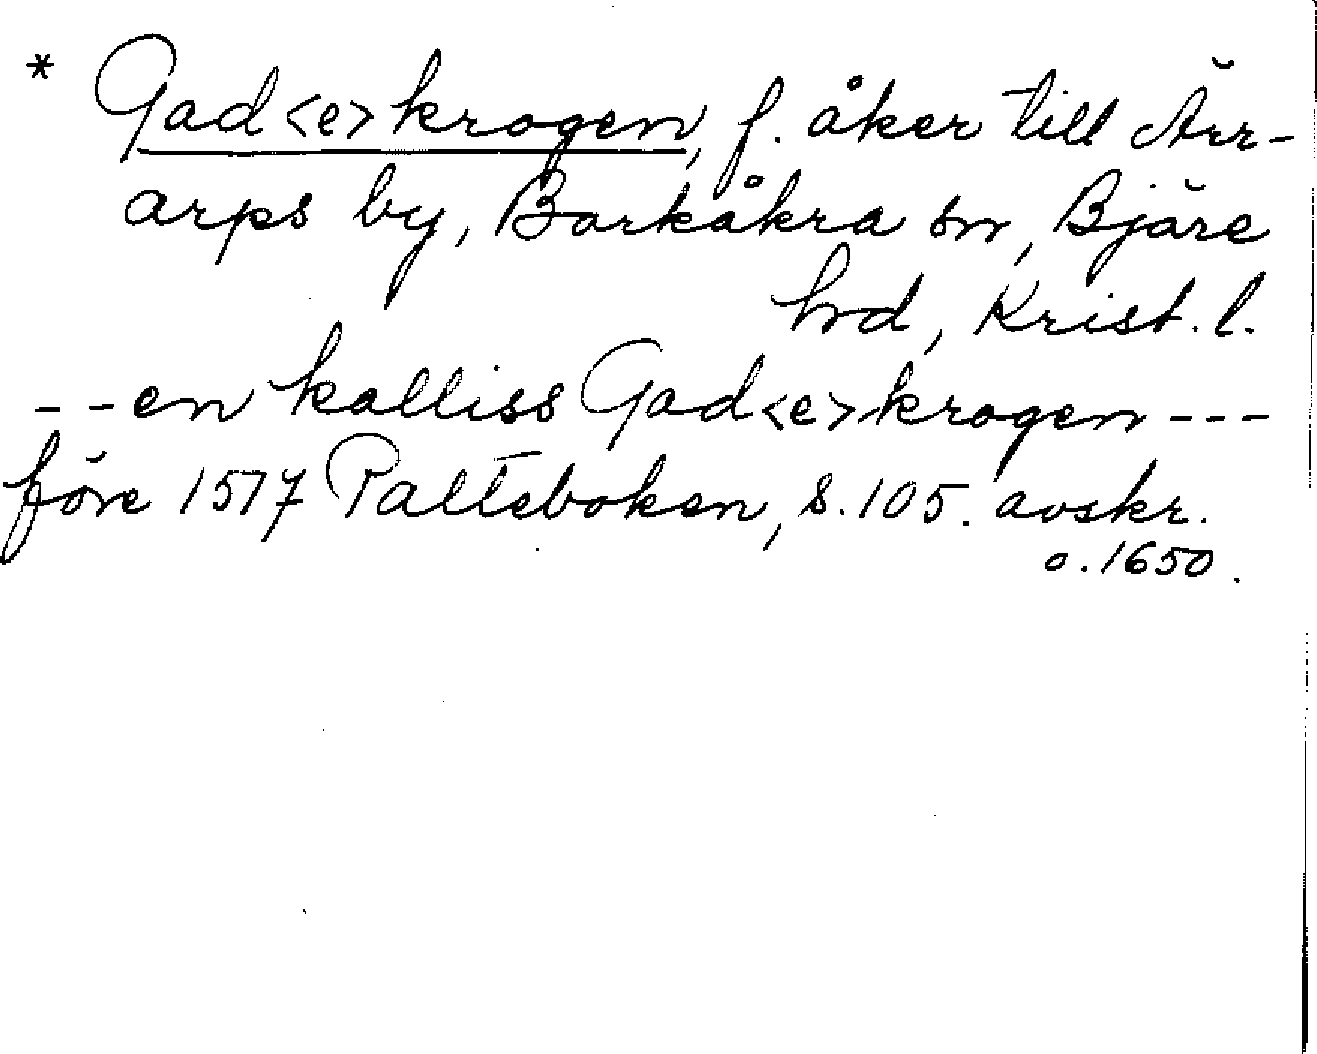 * Gad<e>krogen, f. åker till Ärr-
arps by, Barkåkra sn, Bjäre
hrd, Krist. l.
--en kalliss Gad<e>krogen---
före 1517 Palteboken, s. 105. avskr.
o. 1650.